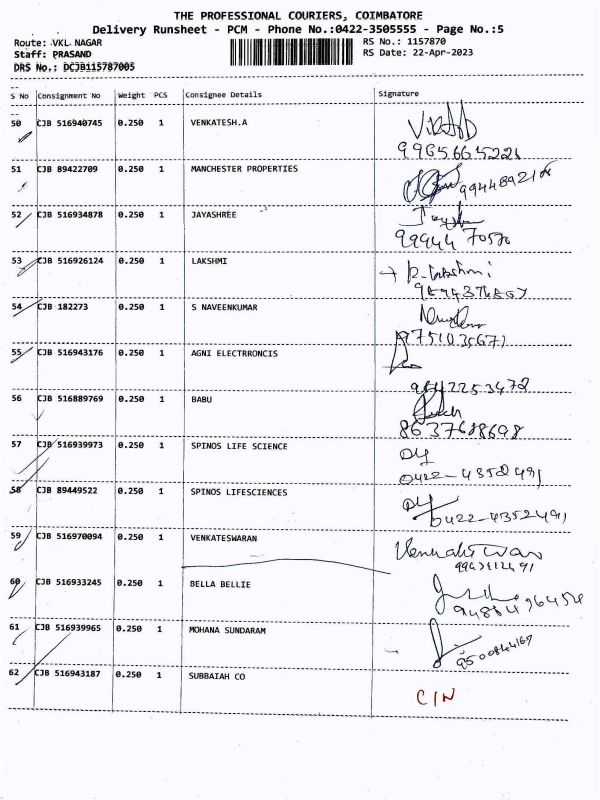 THE PROFESSIONAL COURIERS, COIMBATORE
Delivery Runsheet - PCM - Phone No.:0422-3505555 - Page No.:5
Route: VKL NAGAR RS No.: 1157870
Staff: PRASAND RS Date: 22-Apr-2023
DRS No.: DCJB115787005
S No Consignment No Weight PCS Consignee Details Signature
50 CJB 516940745 0.250 1 VENKATESH.A
51 CJB 89422709 0.250 1 MANCHESTER PROPERTIES
52 CJB 516934878 0.250 1 JAYASHREE
53 CJB 516926124 0.250 1 LAKSHMI
54 CJB 182273 0.250 1 S NAVEENKUMAR
9751035671
55 CJB 516943176 0.250 1 AGNI ELECTRRONCIS
56 CJB 516889769 0.250 1 BABU
8637688698
57 CJB 516939973 0.250 1 SPINOS LIFE SCIENCE
0422-4352491
58 CJB 89449522 0.250 1 SPINOS LIFESCIENCES
0422-4352491
59 CJB 516970094 0.250 1 VENKATESWARAN
60 CJB 516933245 0.250 1 BELLA BELLIE
61 CJB 516939965 0.250 1 MOHANA SUNDARAM
9500844167
62 CJB 516943187 0.250 1 SUBBAIAH CO
C/N